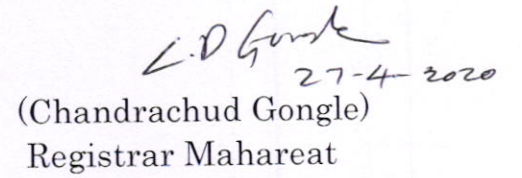 C.D Gongle
27-4-2020
(Chandrachud Gongle)
Registrar Mahareat